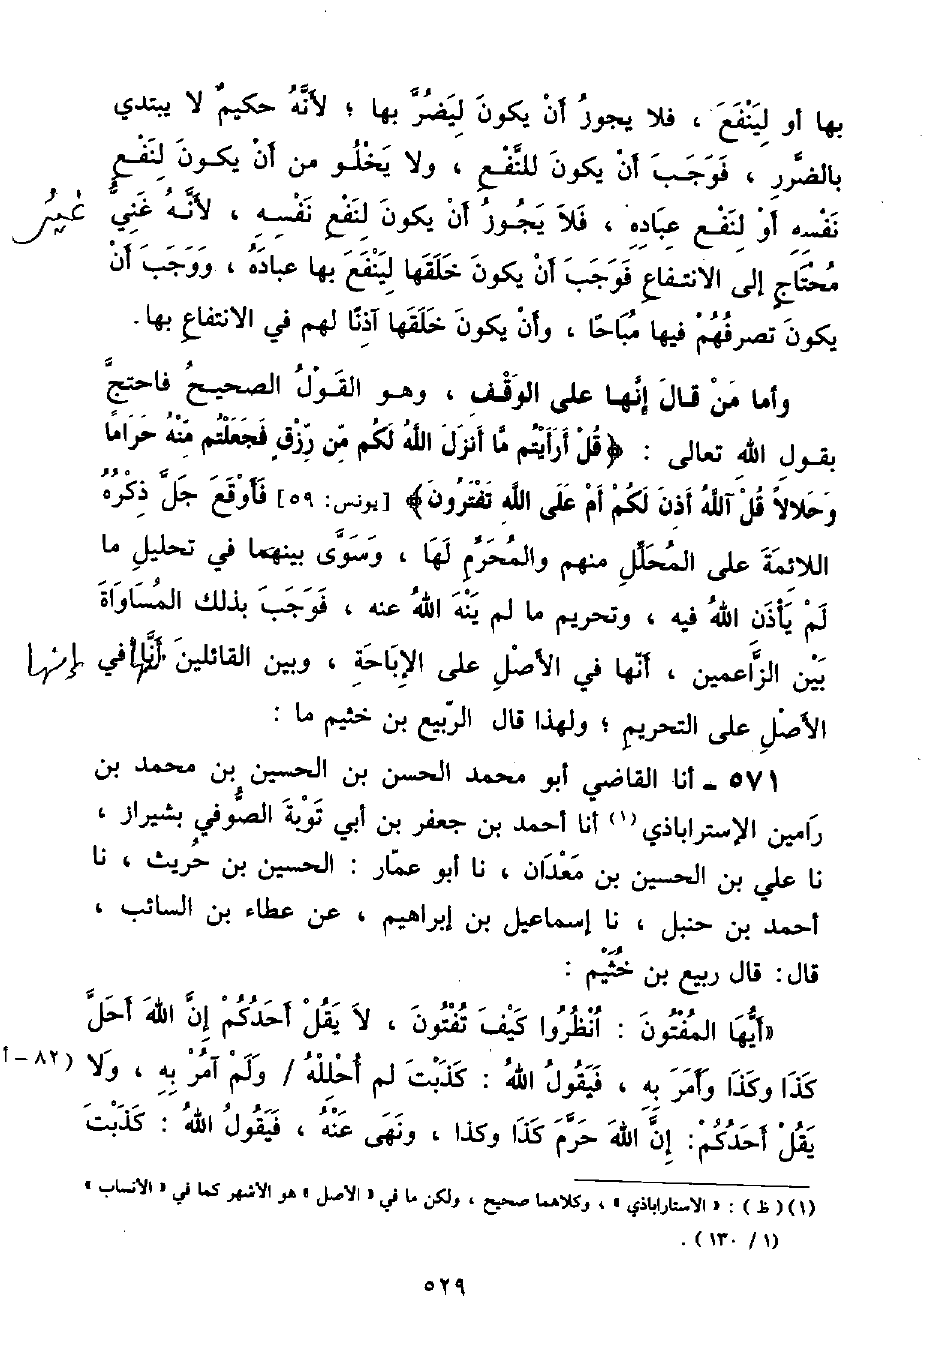 بها أو لِيَنْفَعَ ، فلا يجوزُ أنْ يكونَ لِيَضُرَّ بها ؛ لأنَّهُ حكيمٌ لا يبتدي
بالضَّررِ ، فَوَجَبَ أنْ يكونَ للنَّفْعِ ، ولا يَخْلُو من أنْ يكونَ لنَفْعِ
نَفْسِهِ أوْ لنَفْعِ عبَادِهِ ، فَلاَ يَجُوزُ أنْ يكونَ لِنَفْعِ نَفْسِهِ ، لأنَّهُ غَنِيٌّ غيرُ
مُحْتَاجٍ إلى الانتفاعِ فَوَجَبَ أنْ يكونَ خَلَقَها لِيَنْفَعَ بها عبادَهُ ، وَوَجَبَ أنْ
يكونَ تصرفُهُمْ فيها مُبَاحًا ، وأنْ يكونَ خَلَقَها آذنًا لهم في الانتفاعِ بها.
وأما مَنْ قالَ إنَّها على الوَقْفِ ، وهو القَوْلُ الصحيحُ فاحتجَّ
بقولِ اللهِ تعالى : ﴿قُلْ أَرَأَيْتُم مَّا أَنزَلَ اللهُ لَكُم مّن رِّزْقٍ فَجَعَلْتُم مّنْهُ حَرَاماً
وَحَلالاً قُلْ آللهُ أَذِنَ لَكُمْ أَمْ عَلَى اللهِ تَفْتَرُونَ﴾ [يونس: ٥٩] فَأَوْقَعَ جَلَّ ذِكْرُهُ
اللائمَةَ على المُحَلّلِ منهم والمُحَرِّمِ لَهَا ، وَسَوَّى بينهما في تحليلِ ما
لَمْ يَأْذَنِ اللهُ فيه ، وتحريمِ ما لم يَنْهَ اللهُ عنه ، فَوَجَبَ بذلك المُسَاوَاةَ
بَيْن الزَّاعمين ، أنّها في الأصْلِ على الإِبَاحَةِ ، وبين القائلينَ أنَّها في إنها
الأصْلِ على التحريمِ ؛ ولهذا قال الرّبيع بن خثيم ما :
٥٧١ ـ أنا القاضي أبو محمد الحسن بن الحسين بن محمد بن
رَامين الإستراباذي (١) أنا أحمد بن جعفر بن أبي تَوْبَةَ الصُّوفي بشيراز ،
نا علي بن الحسين بن مَعْدَان ، نا أبو عمّار : الحسين بن حُريث ، نا
أحمد بن حنبل ، نا إسماعيل بن إبراهيم ، عن عطاء بن السائب ،
قال: قال ربيع بن خُثَيْم :
«أيُّها المُفْتُونَ : اُنْظُرُوا كَيْفَ تُفْتُونَ ، لاَ يَقُلْ أَحَدُكُمْ إنَّ اللهَ أَحَلَّ
كَذَا وكَذَا وأَمَرَ بِهِ ، فَيَقُولُ اللهُ : كَذَبْتَ لم أُحْلِلْهُ / وَلَمْ آمُرْ بِهِ ، وَلَا (٨٢ – أ
يَقُلْ أَحَدُكُمْ: إنَّ اللهَ حَرَّمَ كَذَا وكذا ، ونَهَى عَنْهُ ، فَيَقُولُ اللهُ : كَذَبْتَ
(١) ( ظ ) : « الاستاراباذي » ، وكلاهما صحيح ، ولكن ما في « الأصل » هو الأشهر كما في « الأنساب »
(١ / ١٣٠) .
٥٢٩